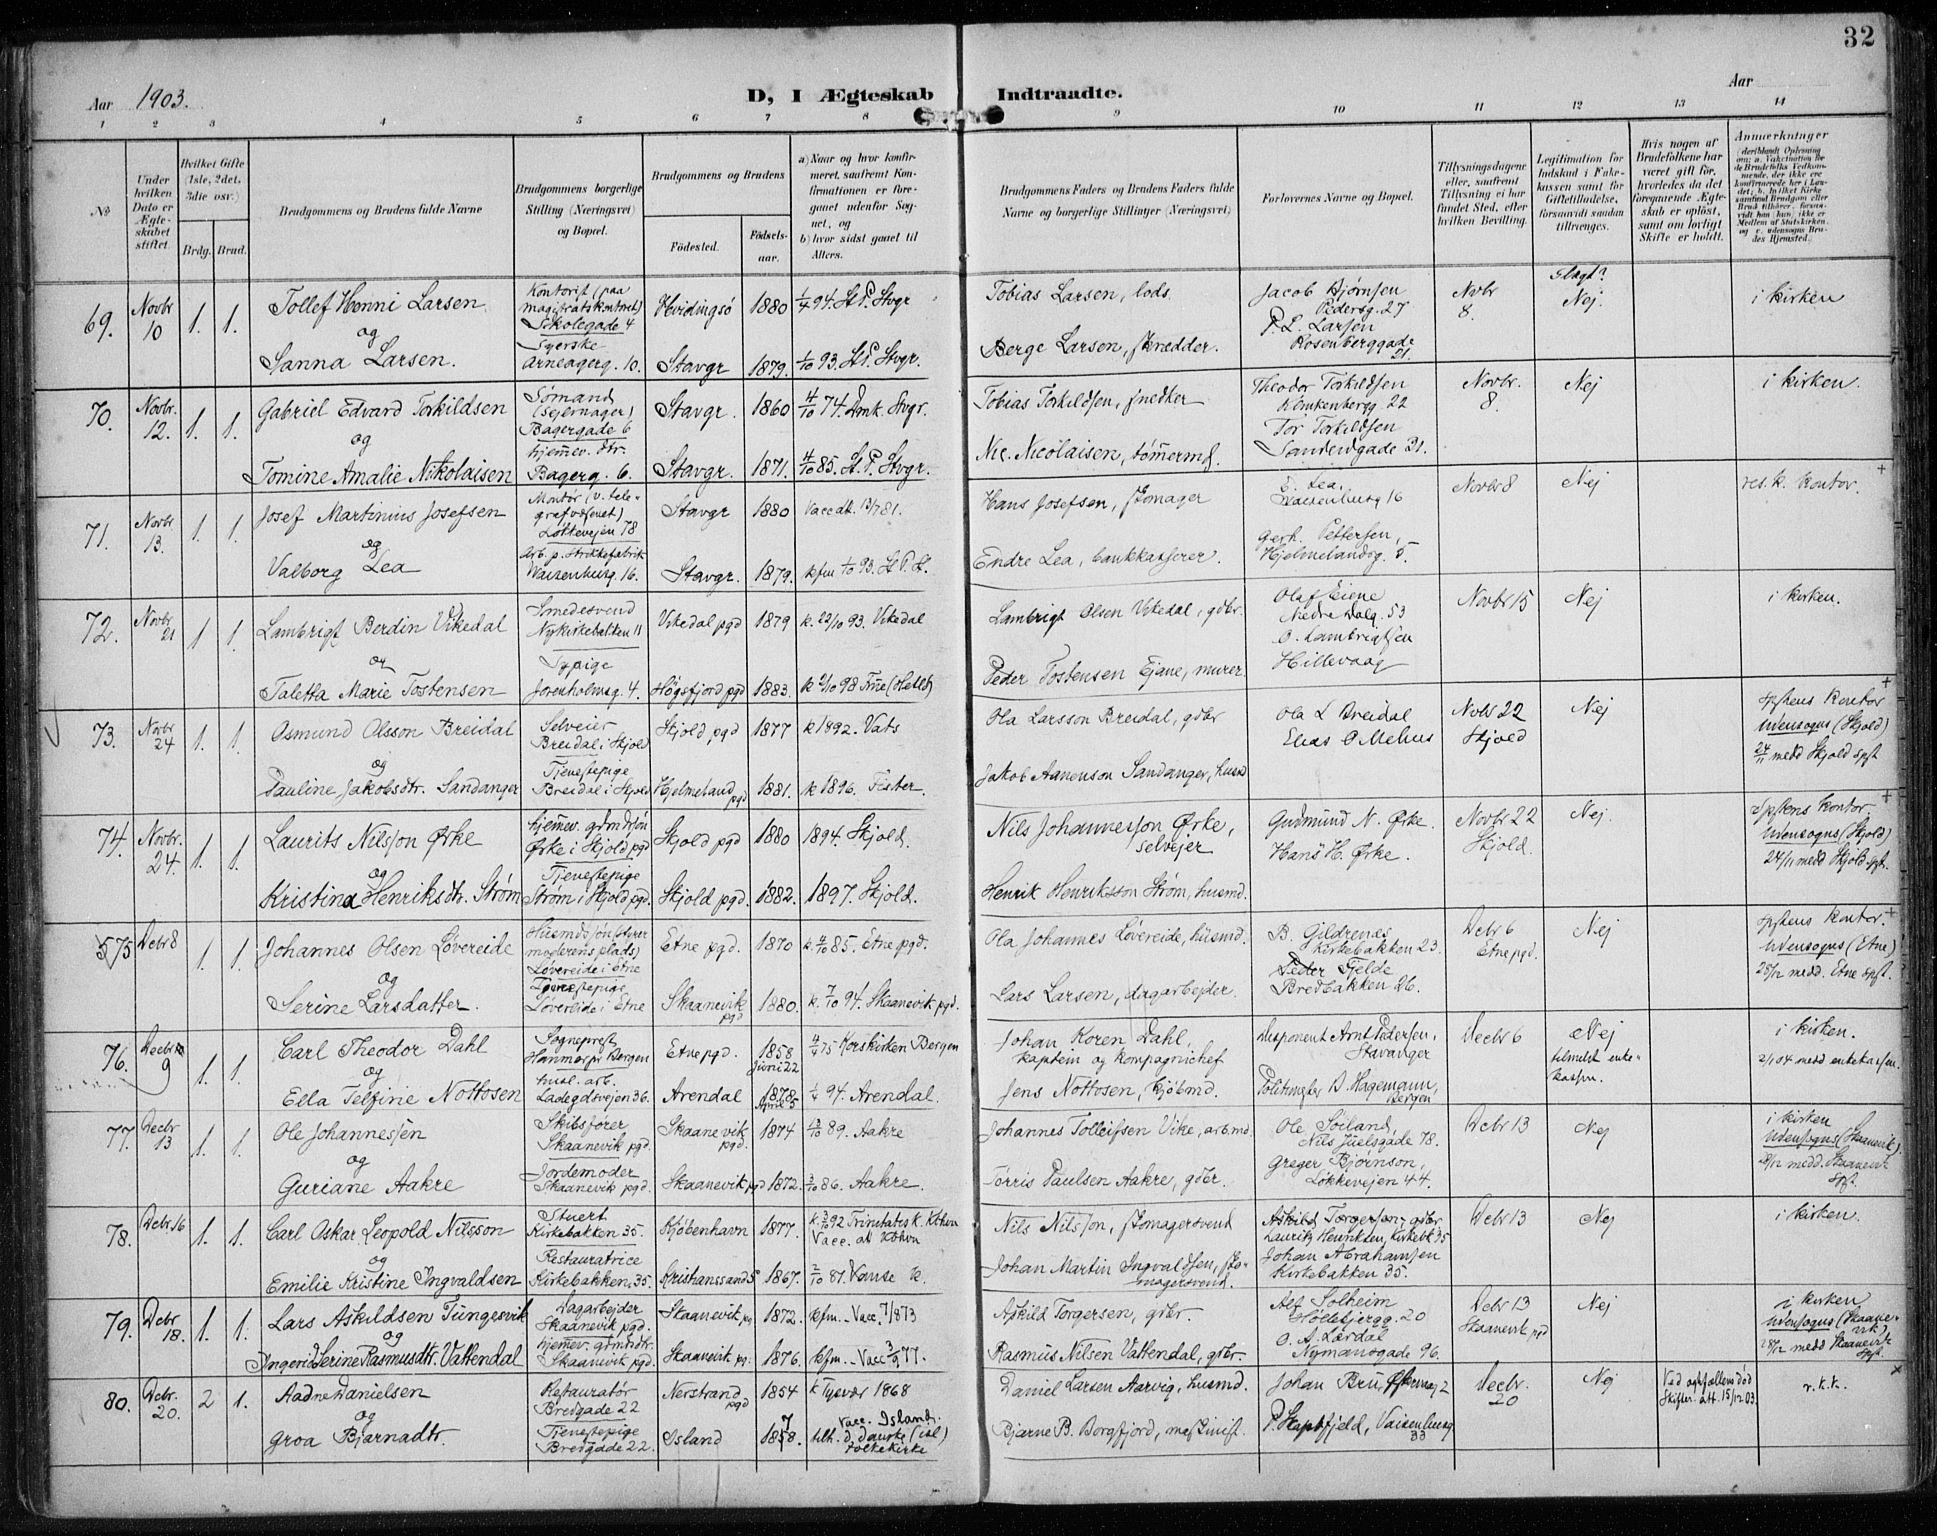 32
Aar 1903.
D, I Ægteskab Indtraadte.
Aar
1 2 3 4 5 6 7 8 9 10 11 12 13 14
No
Under hvilken Dato er Ægteskabet stiftet.
Hvilket Gifte (1ste, 2det, 3die osv.)
Brdg. Brud.
Brudgommens og Brudens fulde Navne
Brudgommens borgerlige Stilling (Næringsvei) og Bopæl.
Brudgommens og Brudens
Fødested.
Fødselsaar.
a) Naar og hvor konfirmeret, saafremt Konfirmationen er foregaaet udenfor Sognet, og
b) hvor sidst gaaet til Alters.
Brudgommens Faders og Brudens Faders fulde Navne og borgerlige Stillinger (Næringsvei)
Forlovernes Navne og Bopæl.
Tillysningsdagene eller, saafremt Tillysning ei har fundet Sted, efter hvilken Bevilling.
Legitimation for Indskud i Enkekassen samt for Giftetilladelse, forsaavidt saadan tiltrænges.
Hvis nogen af Brudefolkene har været gift før, hvorledes da det foregaaende Ægteskab er opløst, samt om lovligt Skifte er holdt.
Anmerkninger
69. Novbr 10 1. 1. Tollef Honni Larsen og Sanna Larsen.
Kontorist (paa magistratskontoret) Skolegade 4
Syerske Arneagerg. 10.
Hvidingsø 1880 1/4 94. St. P. Stvgr
Stavgr 1879. 1/10 93. St. P. Stvgr.
Tobias Larsen, lods.
Berge Larsen, skrædder.
Jacob Bjørnsen Pedersg. 27
P. L. Larsen Rosenberggade 21.
Novbr 8. Nej. i kirken
70. Novbr. 12. 1. 1. Gabriel Edvard Torkildsen og Tomine Amalie Nikolaisen
Sømand (sejermager) Bagergade 6
hjemmev. dtr. Bagerg. 6.
Stavgr. 1860 4/10 74. Dmk. Stvgr.
Stavgr. 1871. 4/10 85. St. P. Stvgr.
Tobias Torkildsen, snedker
Nic. Nicolaisen, tømermd.
Theodor Torkildsen 22
Tor Torkildsen Sandeidgade 21.
Novbr. 8. Nej i kirken.
71. Novbr 13. 1. 1. Josef Martinius Josefsen og Valborg Lea
Montør (v. telegrafvæsenet) Løkkevejen 78
Arb. p. Strikkefabrik Waisenhusg. 16.
Stavgr 1880
Stavgr. 1879. kfm 1/10 93. St P. St.
Hans Josefsen, skomager
Endre Lea, bankkasserer.
E. Lea, Waisenhusg 16
Gerh. Pettersen, Hjelmelandsg. 5
Novbr 8 Nej res. k. kontor. +
72. Novbr 21 1. 1. Lambrigt Berdin Vikedal og Taletta Marie Tostensen
Smedesvend Nykirkebakken 11
Sypige Jorenholmsg. 4.
Vikedal pgd 1879 k. 22/10 93. Vikedal
Høgsfjord pgd 1883.
Lambrigt Olsen Vikedal, gdbr.
Peder Tostensen Ejane, murer
Olaf Eiene Nedre Dalg. 53
O. Lambrigtsen Hillevaag
Novbr 15 Nej i kirken.
73. Novbr 24 1. 1. Osmund Olsson Breidal og Pauline Jakobsdtr. Sandanger
Selveier Breidal i Skjold
Tjenestepige Breidal i Skjold
Skjold pgd 1877 k 1892. Vats
Hjelmeland pgd 1881. k 1896. Fister.
Ola Larsson Breidal, gdbr
Jakob Aanenson Sandanger, husmd
Ola L Breidal
Elias O Mehus
Novbr 22 Skjold Nej
spstens kontor + udensogns (Skjold) 24/11 medd Skjold spst
74. Novbr. 24. 1. 1. Laurits Nilsson Ørke og Kristina Henriksdtr. Strøm
hjemmev. grmdssøn Ørke i Skjold pgd
Tjenestepige Strøm i Skjold pgd.
Skjold pgd 1880 1894. Skjold.
Skjold pgd. 1882. 1897. Skjold.
Nils Johannesson Ørke, selvejer
Henrik Henriksson Strøm, husmd.
Gudmund N. Ørke.
Hans H. Ørke.
Novbr 22 Skjold. Nej.
spstens kontor + udensogns (Skjold) 24/11 medd Skjold spst.
75 Decbr 8 1. 1. Johannes Olsen Løvereide og Serine Larsdatter
Husmdssøn (styrer moderens plads) Løvereide i Etne
Tjenestepige Løvereide i Etne
Etne pgd. 1870 k 4/10 85. Etne pgd.
Skaanevik pgd 1880. k. 7/10 94. Skaanevik pgd.
Ola Johannes Løvereide, husmd.
Lars Larsen, dagarbejder.
B. Gildrenæs Kirkebakken 23.
Peder Fjelde Bredbakken 26.
Decbr 6 Etne pgd. Nej
spstens kontor. + udensogns (Etne) medd. Etne spst.
76. Decbr 9 1. 1. Carl Theodor Dahl og Ella Telfine Nottosen
Sogneprest Hammer pr Bergen
husl. arb. Ladegdsvejen 36.
Etne pgd. 1858 Juni 22 4/4 75 Korskirken Bergen
Arendal 1878 April 5 1/4 94. Arendal.
Johan Koren Dahl, kaptein og kompagnichef
Jens Nottosen, kjøbmd.
Disponent Arnt Pedersen, Stavanger
Politimester D. Hagemann, Bergen
Decbr 6 Nej tilmeldt enkekassen.
i kirken. 2/1 04 medd enkekassen.
77. Decbr 13 1. 1. Ole Johannessen og Guriane Aakre
Skibsfører Skaanevik pgd.
Jordemoder Skaanevik pgd.
Skaanevik pgd. 1874 3/10 89. Aakre
Skaanevik pgd 1872. 3/10 86. Aakre.
Johannes Tolleifsen Vike, arb.md
Tørris Paulsen Aakre, gdbr.
Ole Søiland, Nils Juelsgade 78.
Greger Bjørnson, Løkkevejen 44.
Decbr 13 Nej
i kirken udensogns (Skaanevik). medd. Skaanevik spst.
78. Decbr. 16 1. 1. Carl Oskar Leopold Nilsson og Emilie Kristine Ingvaldsen
Stuert Kirkebakken 35.
Restauratrice Kirkebakken 35.
Kjøbenhavn 1877. k 2/10 92 Trinitatis k. Kbhvn Vacc. att Kbhvn
Kristianssand S 1867. 2/10 81. Vanse k.
Nils Nilsson, skomagersvend
Johan Martin Ingvaldsen, skomagersvend.
Askild Torgersen, gdbr
Lauritz Henriksen, Kirkebk 35
Johan Abrahamsen Kirkebakken 35.
Decbr 13 Nej i kirken.
79. Decbr 18. 1. 1. Lars Askildsen Tungesvik og Ingerid Serine Rasmusdtr. Vattendal
Dagarbejder Skaanevik pgd.
hjemmev. grmdsdtr. Skaanevik pgd.
Skaanevik pg 1872. kfm. - Vacc. 7/1 873
Skaanevik pg. 1876. kfm. - Vacc 3/9 77.
Askild Torgersen, gdbr.
Rasmus Nilsen Vattendal, gdbr.
Adf Solheim Høllebjergg. 20
O. A. Lærdal Nymansgade 96.
Decbr 13 Skaanevik pgd Nej
i kirken udensogns (Skaanevik) medd Skaanevik spst.
80. Decbr. 20. 2 1. Aadne Danielsen og Groa Bjarnadtr.
Restauratør Bredgade 22
Tjenestepige Bredgade 22.
Nerstrand pgd 1854 k Tysvær 1868
Island 1878. Vacc. Island. tilh. d. danske (isl) folkekirke
Daniel Larsen Aarvig, husmd.
Bjarne B. Borgfjord, maskinist.
Johan Bru, 2
P. Skapsfjeld, Vaisenhusg 33
Decbr. 20 Nej
Ved død Skifte. att. 15/12 03. r.k.k. ×